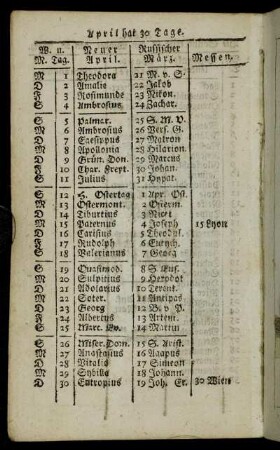 April hat 30 Tage.
W. u. Neuer Russischer
M. Tag. April. März. Messen.
M 1 Theodora 21 M. v. S.
D 2 Amalie 22 Jakob
D 3 Rosimunde 23 Nikon.
S 4 Ambrosius 24 Zachar.
S 5 Palmar. 25 S. M. V.
M 6 Ambrosius 26 Vers. G.
D 7 Egesippus 27 Matron
M 8 Apollonia 28 Hilarion.
D 9 Grün. Don. 29 Marcus
F 10 Char. Freyt. 30 Johan.
S 11 Julius 31 Hypat.
S 12 H. Ostertag 1 Apr. Ost.
M 13 Ostermont. 2 Osterm.
D 14 Tiburtius 3 Nicet
M 15 Paternus 4 Joseph 15 Lyon
D 16 Carisius 5 Theodul.
F 17 Rudolph 6 Eutych.
S 18 Valerianus 7 Georg
S 19 Quasimod. 8 S. Eus.
M 20 Sulpitius 9 Herodot
D 21 Adolarius 10 Terent.
M 22 Soter. 11 Antipas
D 23 Georg 12 B. v. P.
F 24 Albertus 13 Artem.
S 25 Marc. Ev. 14 Martin
S 26 Miser. Dom. 15 S. Arist.
M 27 Anastasius 16 Agapus
D 28 Vitalis 17 Simeon
M 29 Sybilla 18 Johann.
D 30 Eutropius 19 Joh. Er. 30 Wien